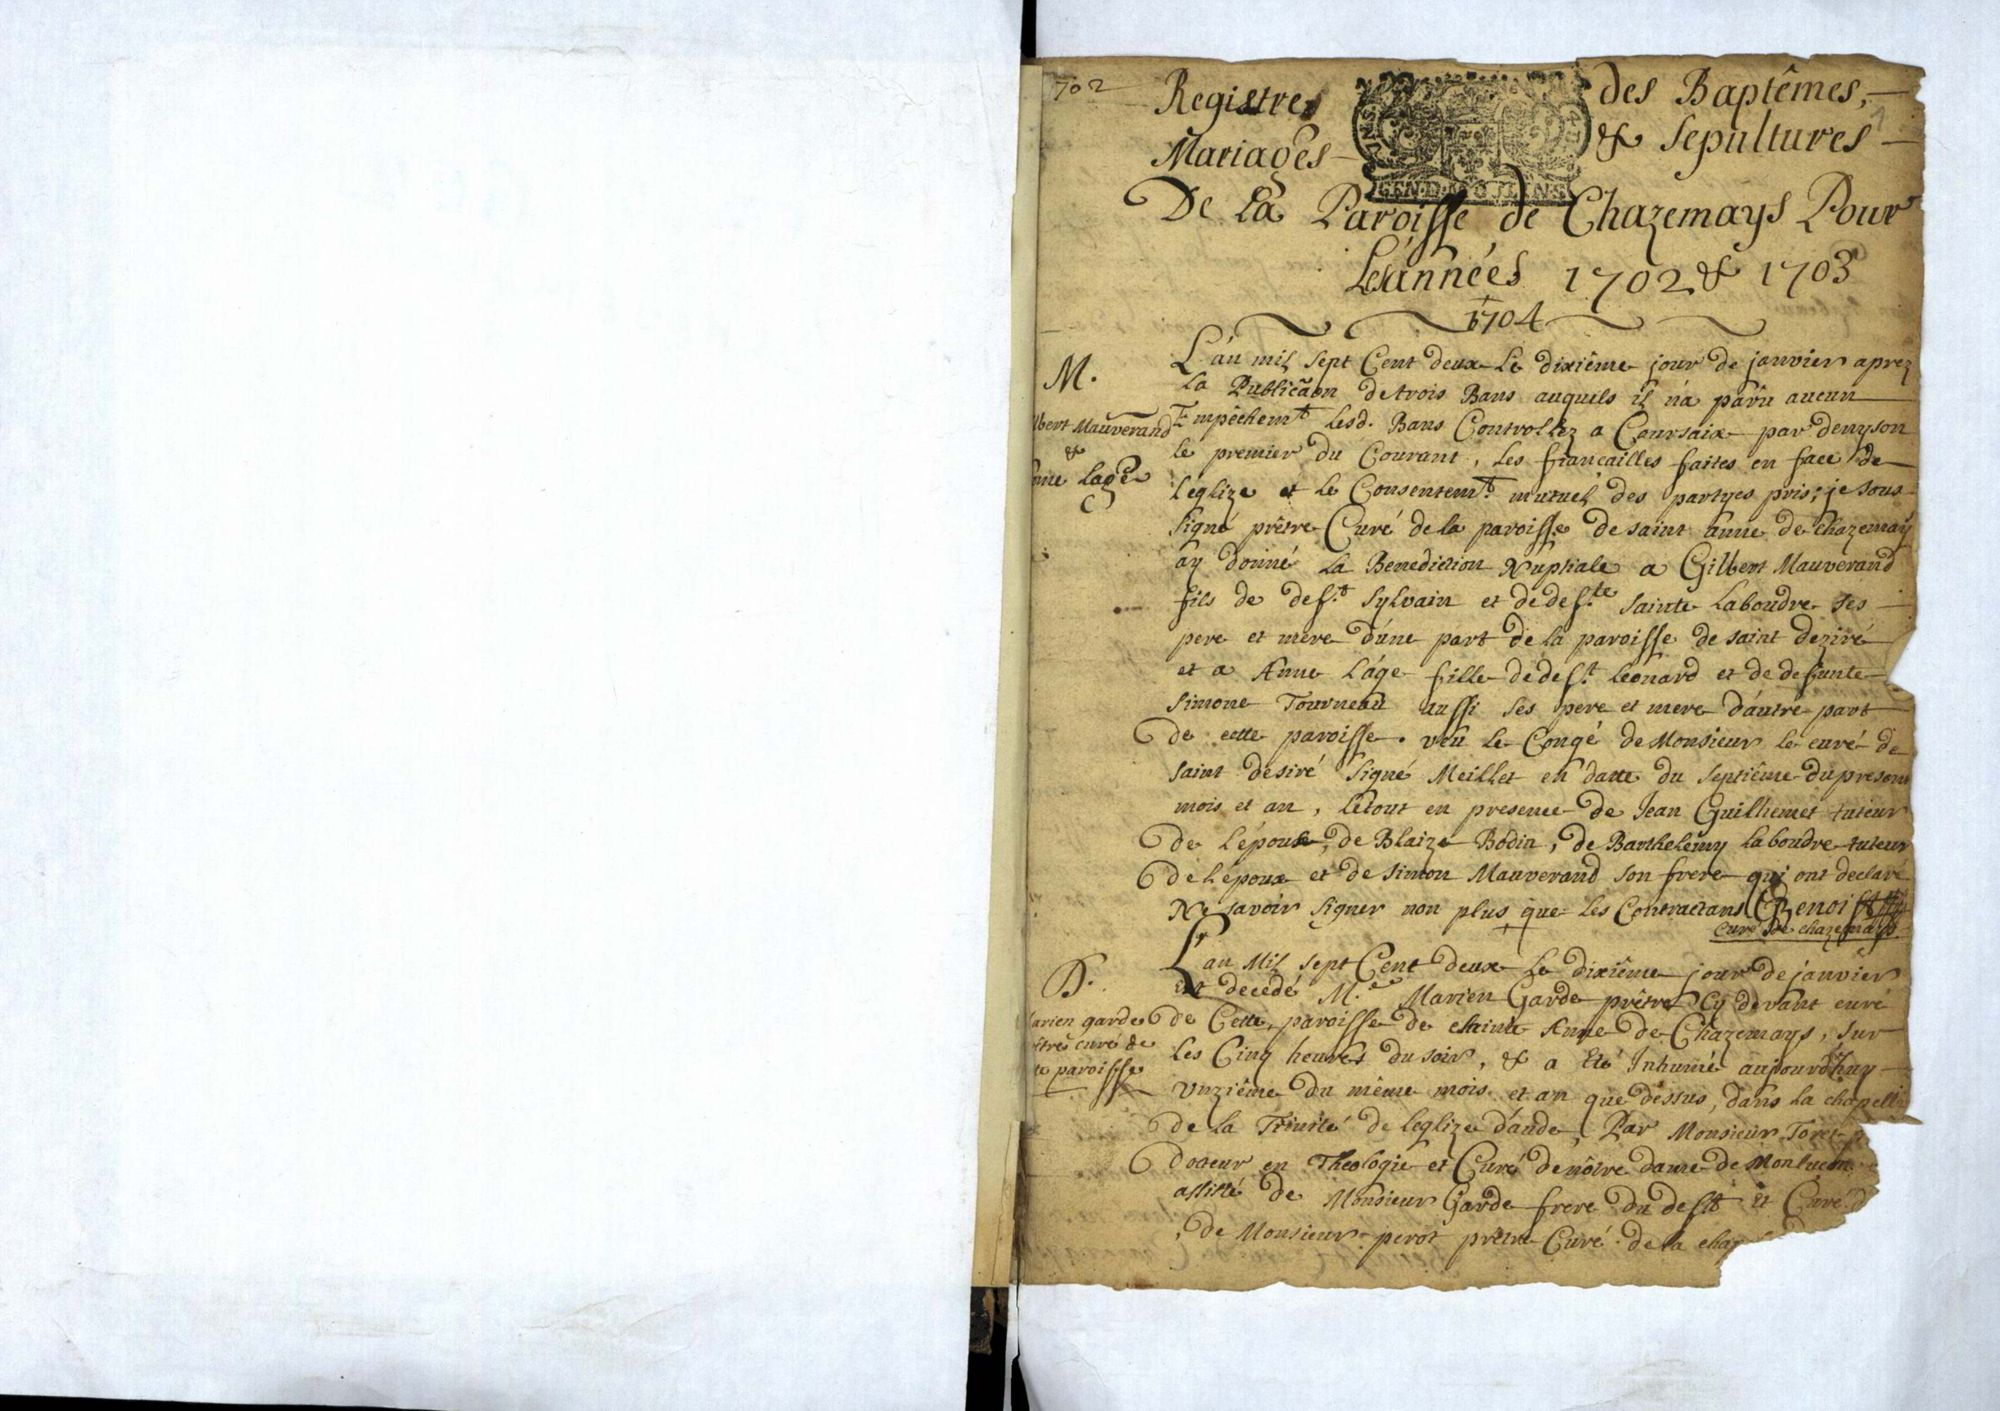 702
Registres des Baptêmes,
Mariages & Sepultures
De La Paroisse de Chazemays Pour
Les années 1702 & 1703
1704
GEN·D·MOULINS
M.
lbert Mauverand
&
nne Lage
L'an mil sept Cent deux Le dixième jour de janvier aprez
La Publicãon de trois Bans auquels il n'a parû aucun
Empêchemt. Lesd. Bans Controllez a Coursaix par denyson
le premier du Courant, Les fiancailles faites en face de
L'églize et le Consentemt. mutuel des partyes pris; je sous
signé prêtre Curé de la paroisse de saint anne de chazemay
ay donné La Benediction Nuptiale a Gilbert Mauverand
fils de deft. Sylvain et de defte. sainte Laboudre ses
pere et mere d'une part de la paroisse de saint deziré
et a Anne Lâge fille de deft. Leonard et de defunte
Simone Tourneau aussi ses pere et mere d'autre part
de cette paroisse. veu le Congé de Monsieur le curé de
saint desiré signé Meillet en datte du septiême du present
mois et an, le tout en presence de Jean Guilhemet tuteur
de L'épouse, de Blaize Bodin, de Barthelemy laboudre tuteur
de L'époux et de simon Mauverand son frere qui ont declaré
Ne savoir signer non plus que les Contractans Benoist
curé de chazemays
D.
arien garde
être curé de
te paroisse
L'an Mil sept Cent deux Le dixiême jour de janvier
est decedé Me. Marien Garde prêtre Cy devant curé
de Cette paroisse de sainte Anne de Chazemays, sur
les Cinq heures du soir, & a Eté Inhumé aujourd'huy
unziême du même mois et an que dessus, dans la chapelle
de la Trinité de l'eglize d'aude, Par Monsieur Toret
docteur en Theologie et Curé de nôtre dame de Monlucon
assisté de Monsieur Garde frere du deft et Curé d
, de Monsieur perot prêtre Curé de la chap